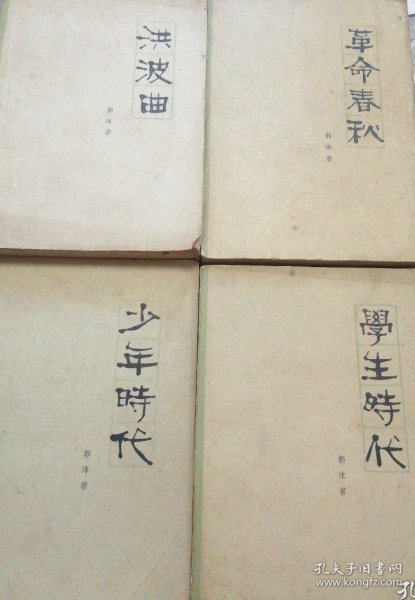 洪波曲
郭沫若
革命春秋
郭沫若
少年時代
郭沫若
學生時代
郭沫若
孔夫子旧书网
www.kongfz.com
孔